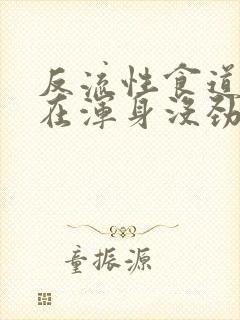 反流性食道
在浑身没劲
童振源